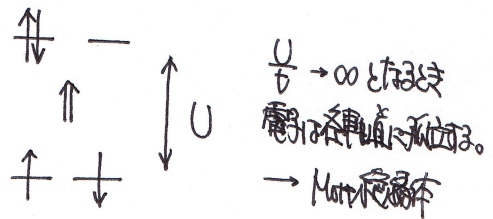 U
U/t → ∞ となるとき
電子は各軌道に孤立する。
→ Mott絶縁体